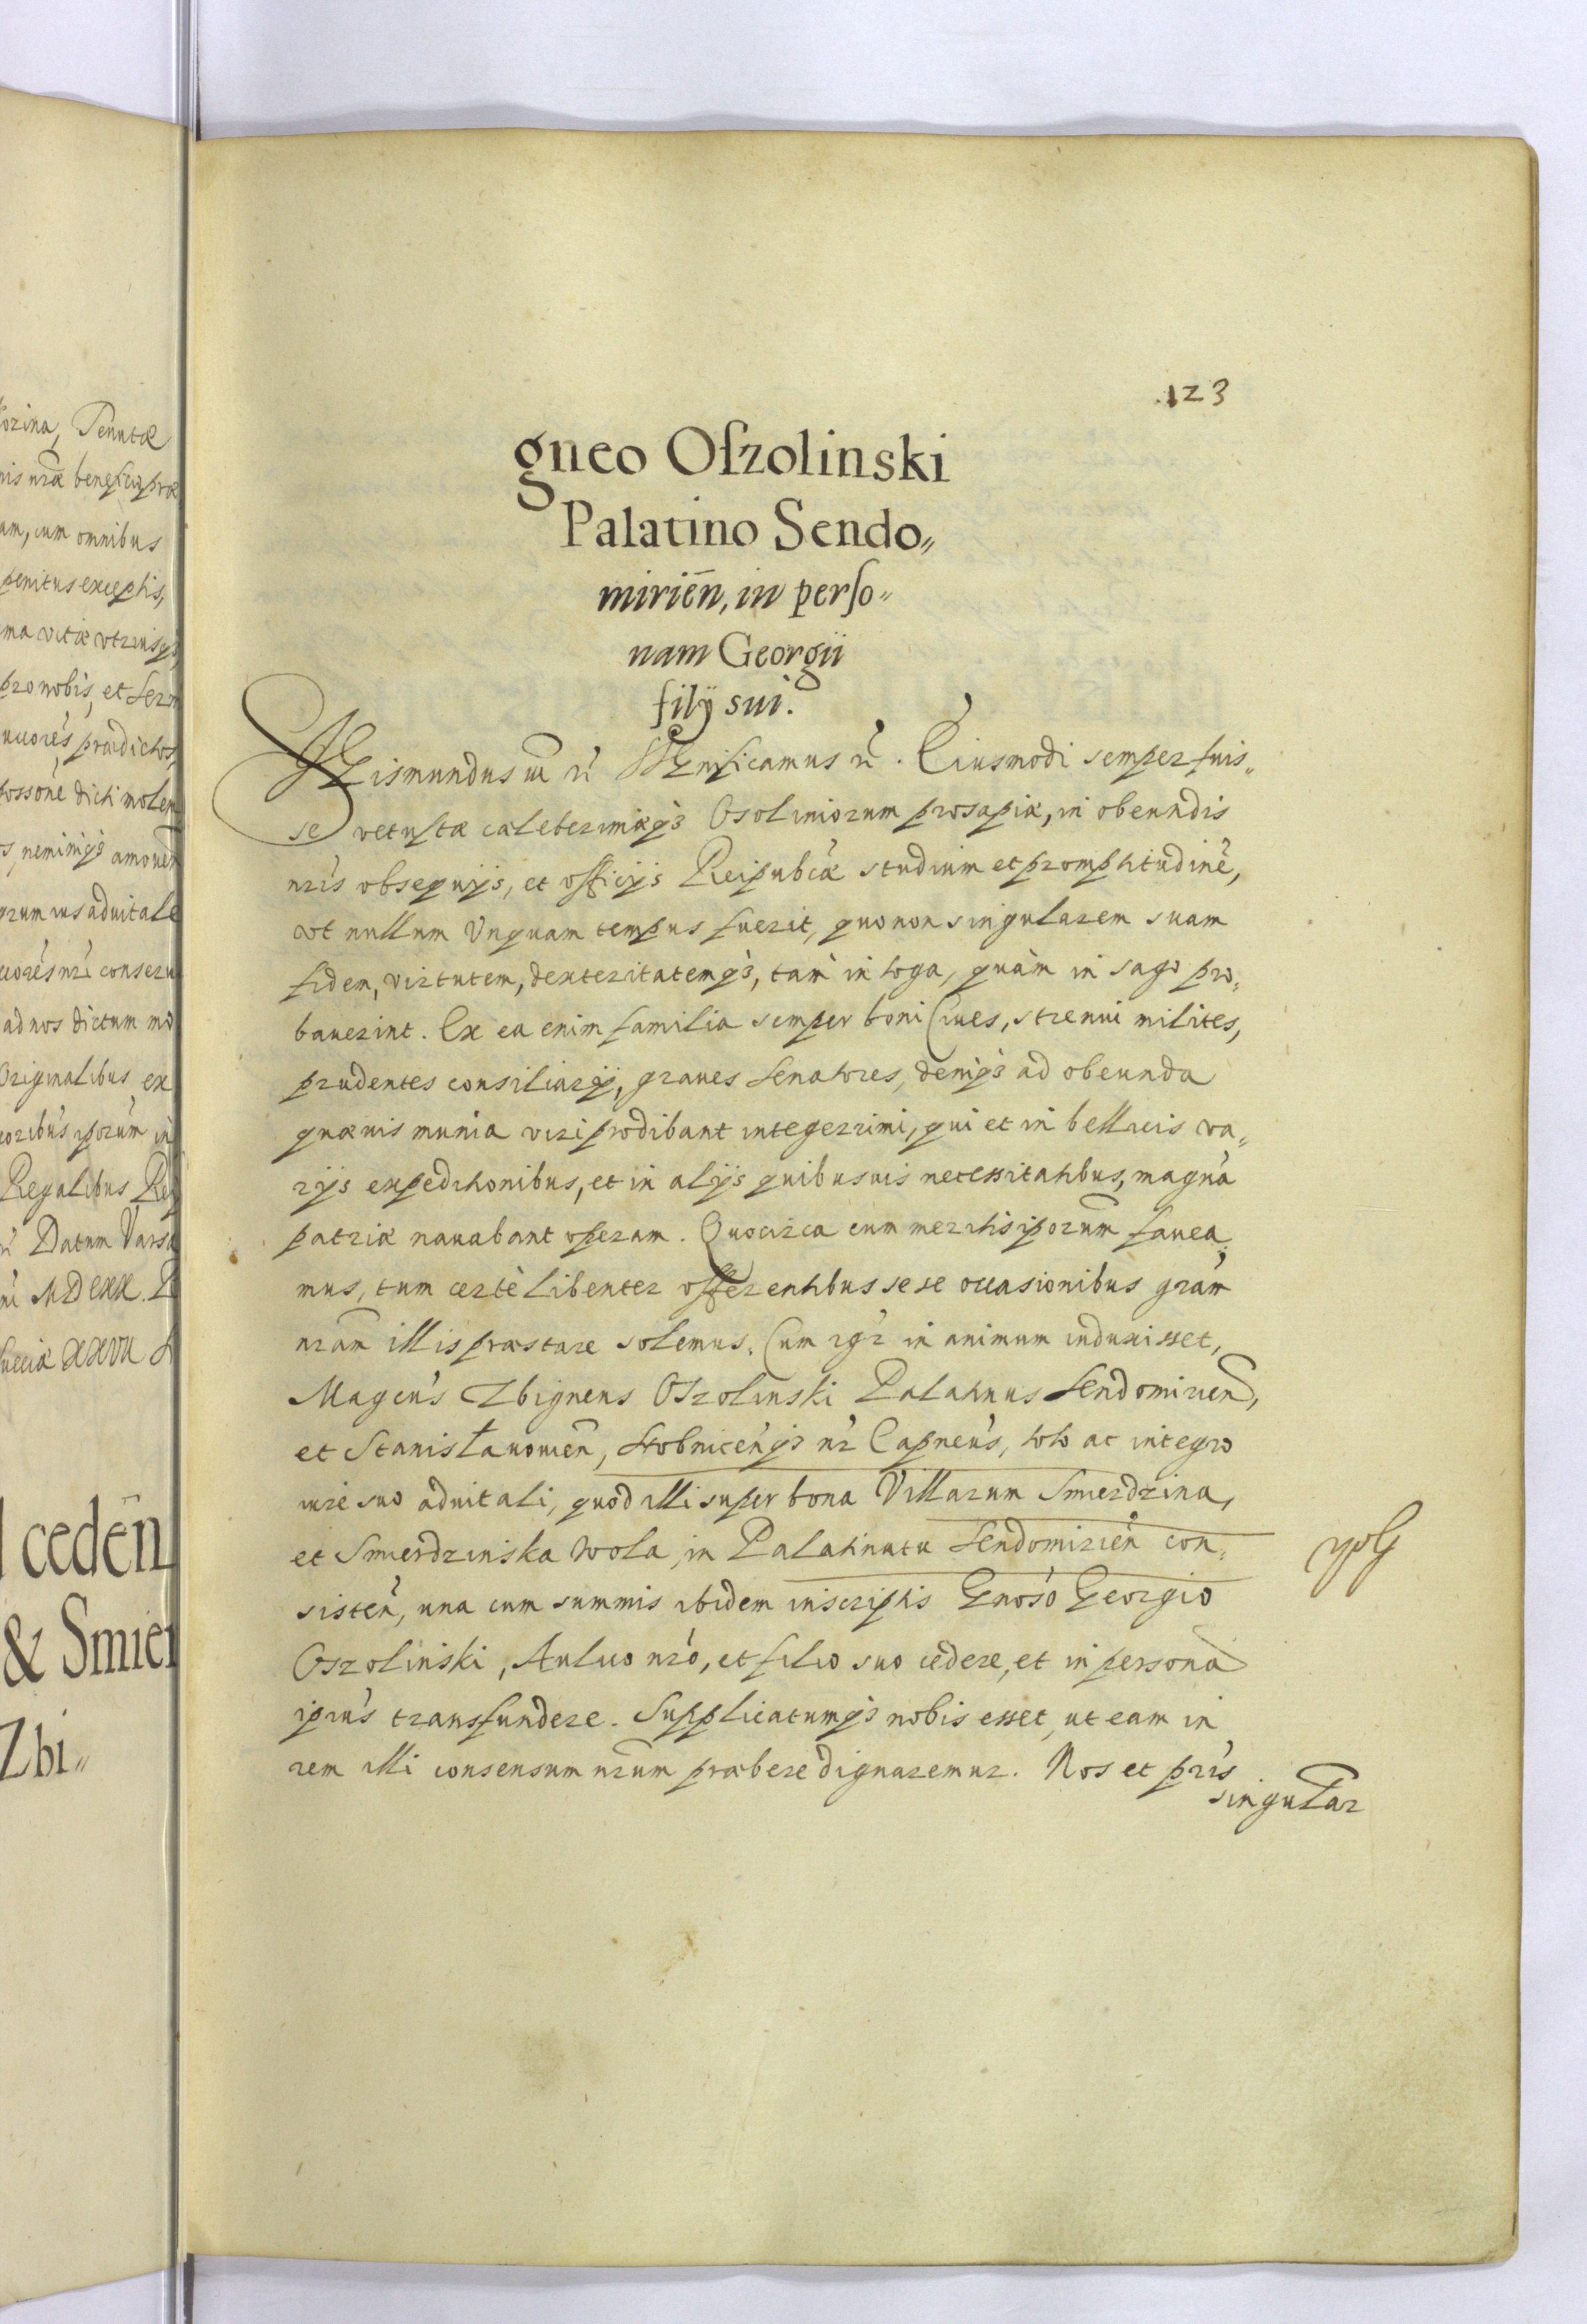 ozina, Tenutæ
nis nræ beneficio præ
am, cum omnibus
penitus exceptis,
ma vitæ vtriusq3
pro nobis, et Sere
uccorés prædictos,
dicti molen
s, neminiq3 amouen
rum ius aduitale
ccorés nri conseru
ad nos dictum mo
Originalibus, ex
coribus ipsorum in
Regalibus, Reg
Datum Varsa
ni MDCXX. D
Sueciæ XXVII
ceden̄
& Smier
Zbi„
123
gneo Oſzolinski
Palatino Sendo„
mirien̄, in perſo„
nam Georgii
filÿ sui.
Sigismundus III rć Significamus rć. Eiusmodi semper fuis„
se vetustæ celeberrimæq3 Osoliniorum prosapiæ, in obeundis
nris obsequijs, et officijs Reipubcæ studium et promptitudinē,
vt nullum Vnquam tempus fuerit, quo non singularem suam
fidem, virtutem, dexteritatemq3, tam in toga, quàm in sago pro„
bauerint. Ex ea enim familia semper boni Ciues, strenui milites,
prudentes consiliarij, graues Senatores, deniq3 ad obeunda
quæuis munia viri prodibant integerrimi, qui et in bellicis va„
rijs expeditionibus, et in alijs quibusuis necessitatibus, magna
patriæ nauabant operam. Quocirca cum meritis ipsorum fauea„
mus, tum certè libenter offerentibus sese occasionibus gram
nram illis præstare solemus. Cum igr in animum induxisset,
Magcus Zbigneus Oszolinski Palatinus Sendomirien,
et Stanisłauouien, Stobnicenq3 nr Capneus, toto ac integro
iure suo aduitali, quod illi super bona Villarum Smierdzina,
et Smierdzinska Wola, in Palatinatu Sendomirien con„
sisten, una cum summis ibidem inscriptis Gnoso Georgio
Oszolinski, Aulico nro, et filio suo cedere, et in persona
ipsius transfundere. Supplicatumq3 nobis esset, ut eam in
rem illi consensum nrum præbere dignaremur. Nos et pris
singular